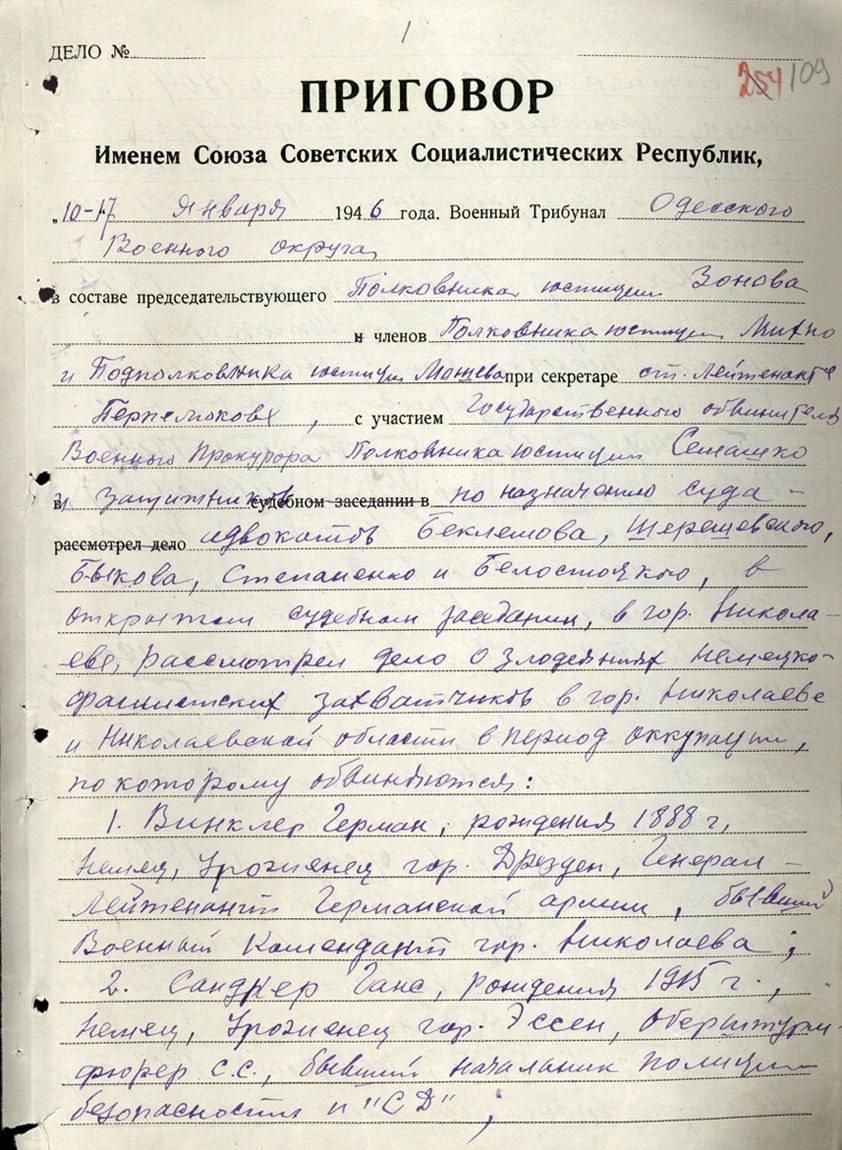 1
ДЕЛО №
254 109
ПРИГОВОР
Именем Союза Советских Социалистических Республик,
„10-17 января 1946 года. Военный Трибунал Одесского
Военного округа,
в составе председательствующего Полковника юстиции Зонова
и членов Полковника юстиции Михно
и Подполковника юстиции при секретаре ст. Лейтенанте
с участием Государственного обвинителя
Военного Прокурора Полковника юстиции Семашко
и защитников судебном заседании в по назначению суда -
рассмотрел дело адвокатов Беклемова, Шерешевского,
Быкова, Степаненко и Белостоцкого, в
открытом судебном заседании, в гор. Никола-
еве, рассмотрел дело о злодеяниях немецко-
фашистских захватчиков в гор. Николаеве
и Николаевской области в период оккупации,
по которому обвиняются:
1. Винклер Герман, рождения 1888 г,
немец, уроженец гор. Дрезден, Генерал-
Лейтенант Германской армии, бывший
Военный Комендант гор. Николаева;
2. Санднер Ганс, рождения 1915 г.,
немец, уроженец гор. Эссен, Оберштурм-
фюрер С.С., бывший начальник полиции
безопасности и "СД";